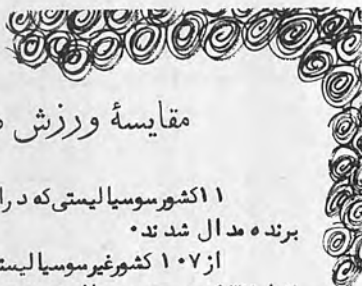 مقایسهٔ ورزش
۱۱کشورسوسیالیستی‌که درا
برنده مدال شدند۰
از۱۰۷ کشورغیرسوسیالیست